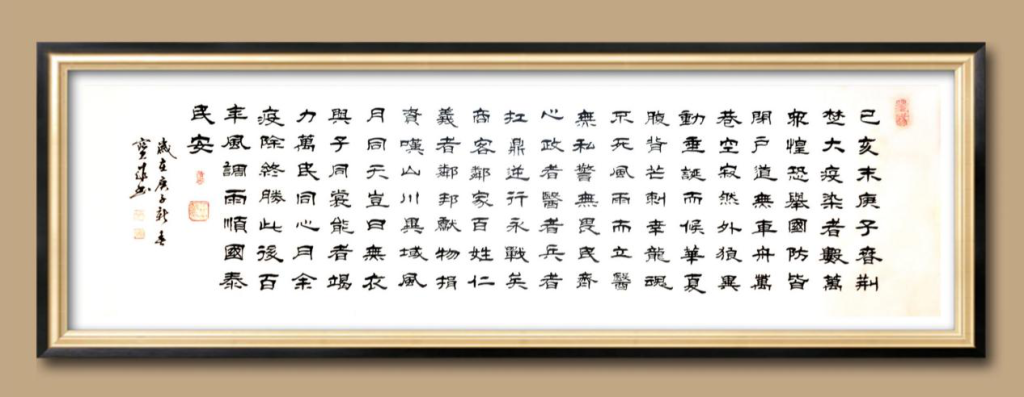 己亥末庚子春荆
楚大疫染者數萬
眾惶恐舉國防皆
閉戶道無車舟萬
巷空寂然外狼異
動垂誕而候華夏
腹背芒刺幸龍魂
不死風雨而立醫
無私警無畏民齊
心政者醫者兵者
扛鼎逆行永戰矣
商客鄰家百姓仁
義者鄰邦獻物捐
資嘆山川異域風
月同天豈曰無衣
與子同裳能者竭
力萬民同心月余
疫除終勝此後百
年風調雨順國泰
民安
歲在庚子新春